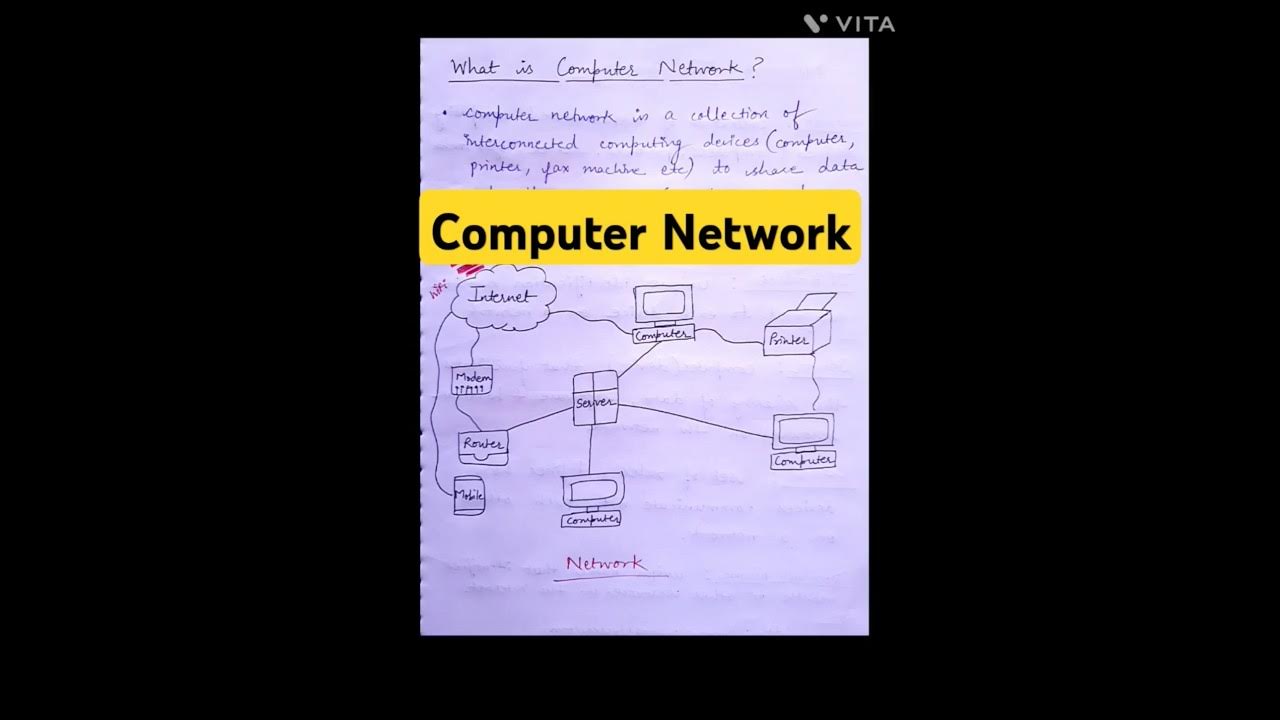 VITA
What is Computer Network?
• computer network is a collection of
interconnected computing devices (computer,
printer, fax machine etc) to share data
Computer Network
Internet
Computer
Printer
Modem
Server
Router
Computer
Mobile
Computer
Network